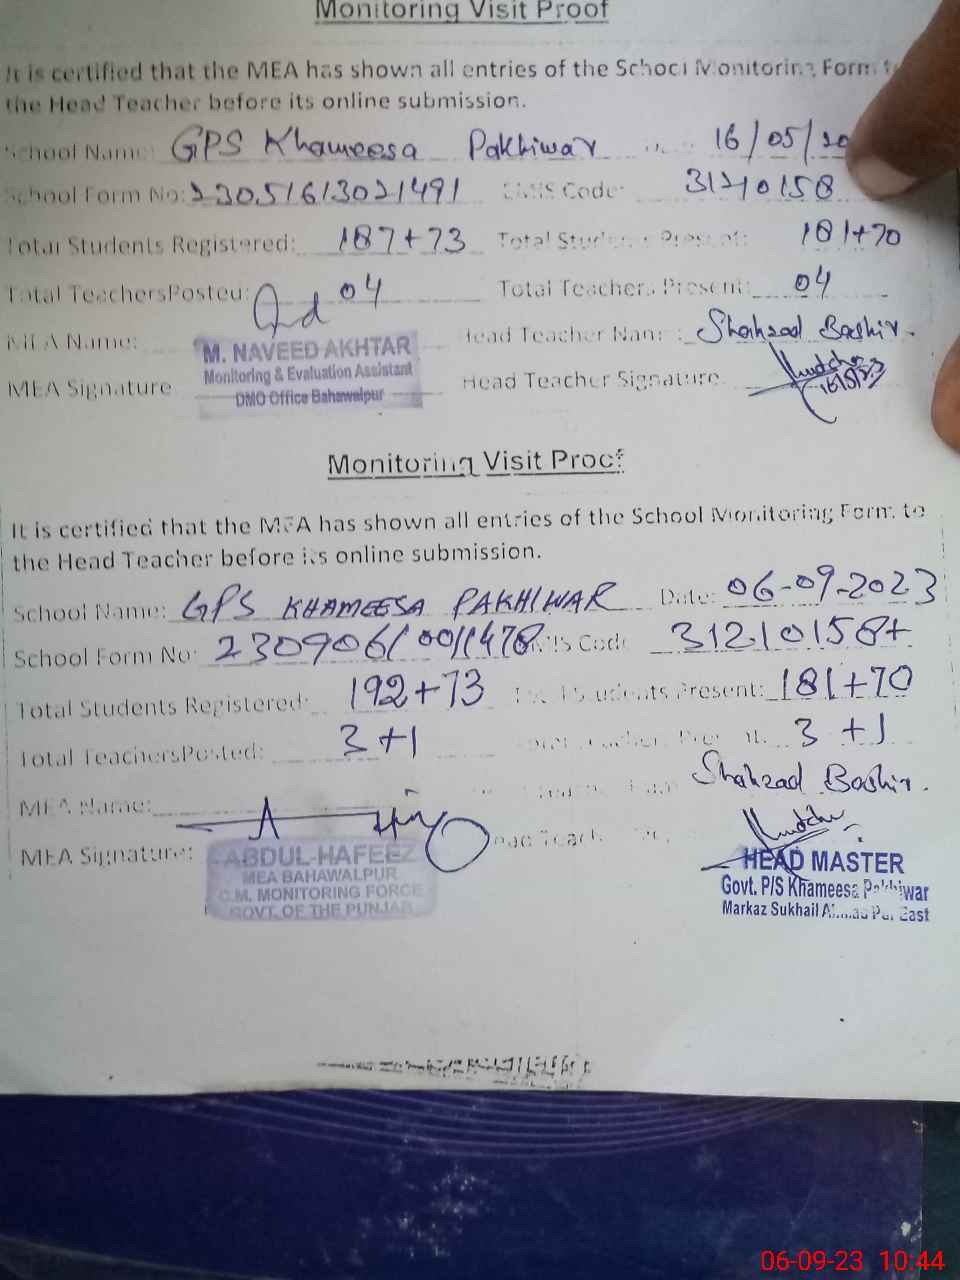 Monitoring Visit Proof
It is certified that the MEA has shown all entries of the School Monitoring Form to
the Head Teacher before its online submission.
School Name: GPS Khameesa Pakhiwar 16/05/20
School Form No: 230516/3021491 EMIS Code: 31210158
Total Students Registered: 187+73 Total Students Present: 181+70
Total TeachersPosted: 04 Total Teachers Present: 04
MEA Name: Head Teacher Name: Shahzad Bashir.
M. NAVEED AKHTAR
Monitoring & Evaluation Assistant
DMO Office Bahawalpur
MEA Signature Head Teacher Signature
16/5/23
Monitoring Visit Proof
It is certified that the MEA has shown all entries of the School Monitoring Form to
the Head Teacher before its online submission.
School Name: GPS KHAMEESA PAKHIWAR Date: 06-09-2023
School Form No: 230906/0011478 EMIS Code 31210158+
Total Students Registered: 192+73 Total Students Present: 181+70
Total TeachersPosted: 3+1 Total Teachers Present: 3+1
MEA Name: Shahzad Bashir.
MEA Signature: Head Teacher
ABDUL-HAFEEZ
MEA BAHAWALPUR
C.M. MONITORING FORCE
GOVT. OF THE PUNJAB
HEAD MASTER
Govt. P/S Khameesa Pakhiwar
Markaz Sukhail Ahmad Pur East
06-09-23 10:44